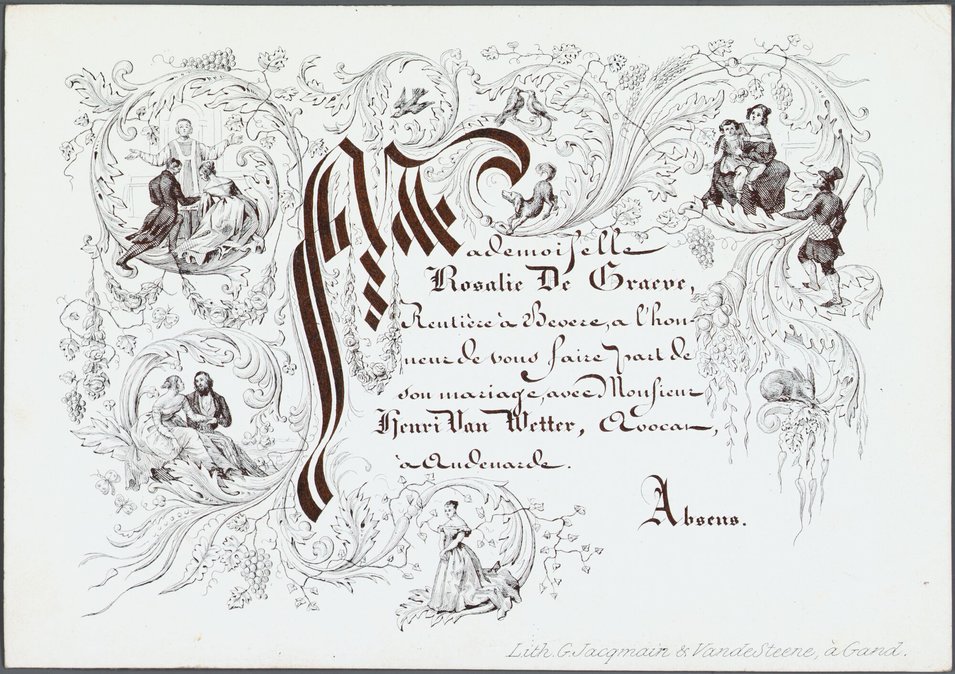 Mademoiselle
Rosalie De Graeve,
Rentière à Bevere, a l'hon-
neur de vous faire part de
son mariage, avec Monsieur
Henri Van Wetter, Avocat,
à Audenarde.
Absens.
Lith. G. Jacqmain & VandeSteene, à Gand.